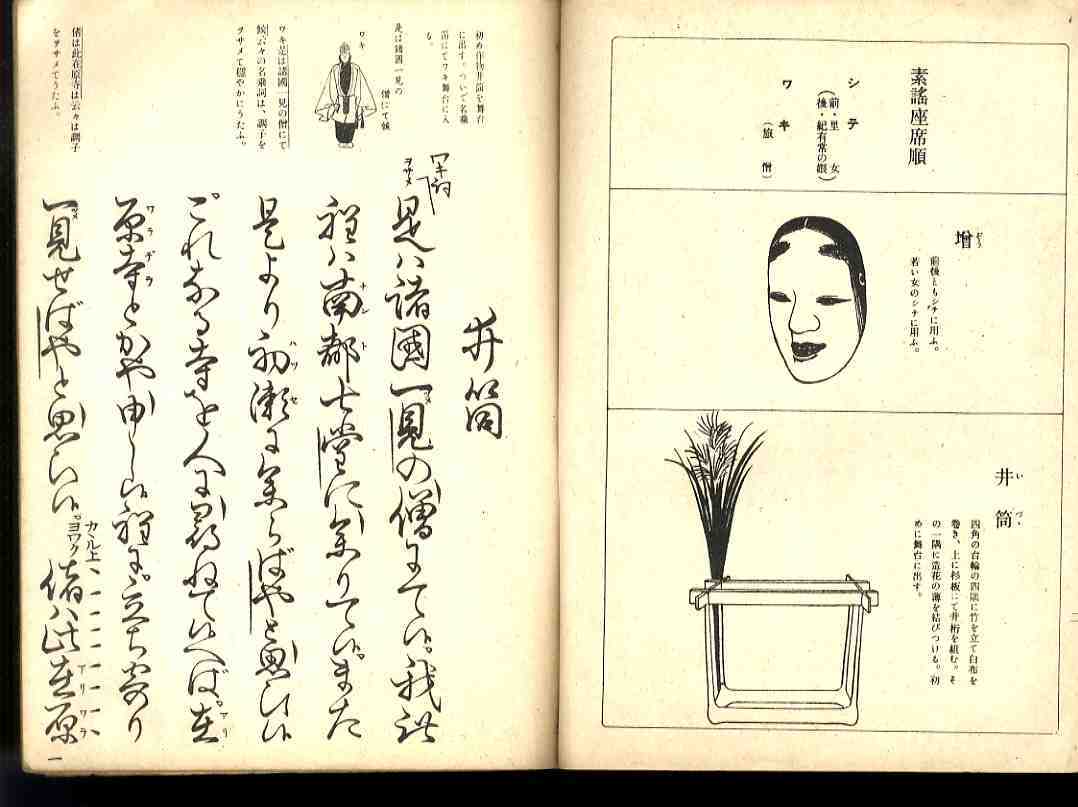 素謡座席順
シテ
(前・里女
後・紀有常の娘)
ワキ
(旅僧)
増
ぞう
前後ともシテに用ふ。
若い女のシテに用ふ。
井筒
ゐづつ
四角の台輪の四隅に竹を立て白布を
巻き、上に杉板にて井桁を組む。そ
の一隅に造花の薄を結びつける。初
めに舞台に出す。
初め作物井筒を舞台
に出す。ついで名乗
笛にてワキ舞台に入
る。
是は諸國一見の
僧にて候
ワキ
ワキ是は諸國一見の僧にて
候云々の名乗詞は、調子を
ヲサメて穏やかにうたふ。
偖は此在原寺は云々は調子
をヲサメてうたふ。
井筒
ワキ詞
ヲサメ
是ハ諸國一見の僧にて候。我此
程ハ南都七堂に参りて候。また
是より初瀬に参らばやと思ひ候
これなる寺を人に尋ねて候へば。在
原寺とかや申し候程に。立ち寄り
一見せばやと思ひ候。
カヽル上
ヨワク
偖ハ此在原
一